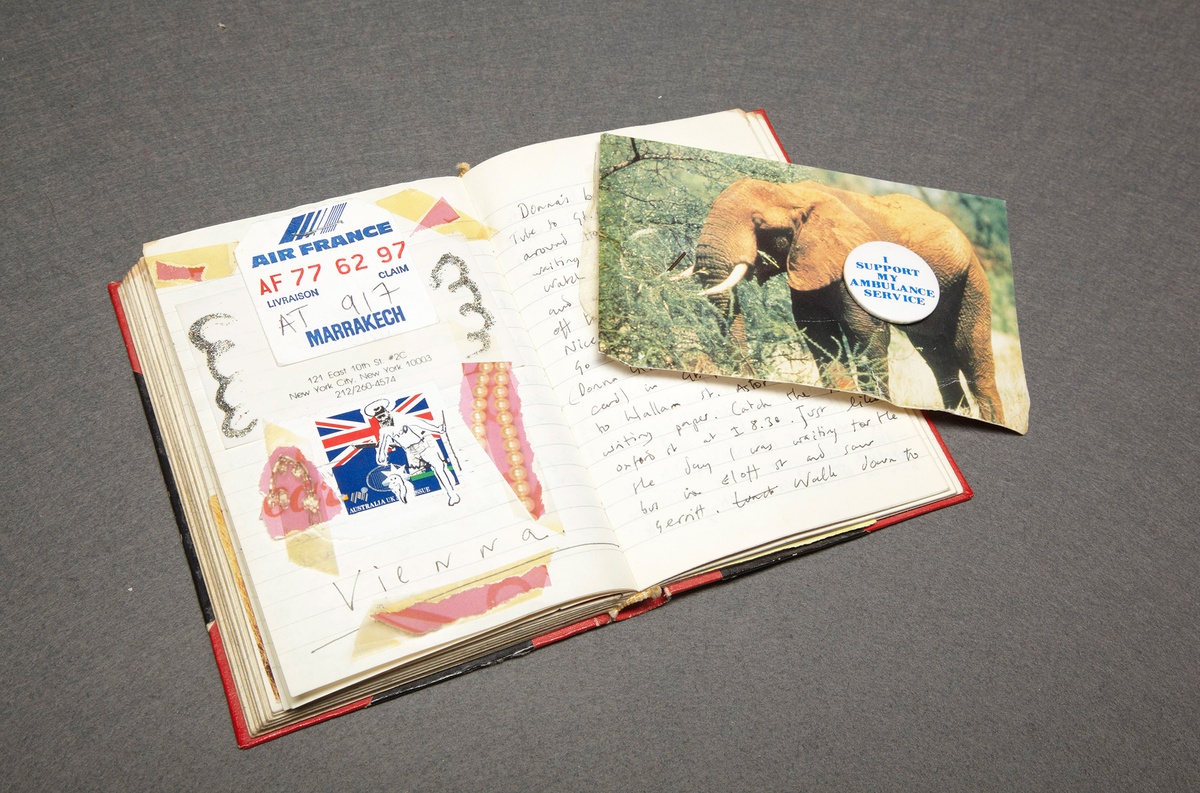 AIR FRANCE
AF 77 62 97
LIVRAISON CLAIM
AT 917
MARRAKECH
121 East 10th St. #2C
New York City, New York 10003
212/260-4574
AUSTRALIA UK ISSUE
Vienna
Donna's b
Tube to St.
around
waiting
watch
and
off
Nice
Go
(Donna
card) in
to Wallam St. Astor
writing paper. Catch the
oxford st at I 8.30. Just like
the day I was waiting for the
bus in Eloff st and saw
Gerritt. Walk down to
I
SUPPORT
MY
AMBULANCE
SERVICE